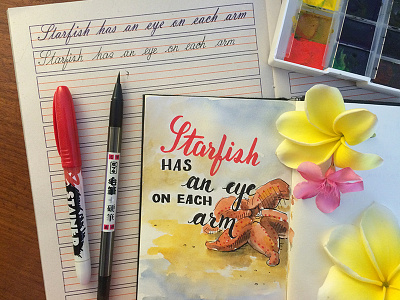 Starfish has an eye on each arm
Starfish has an eye on each arm
Starfish
HAS
an eye
ON EACH
arm